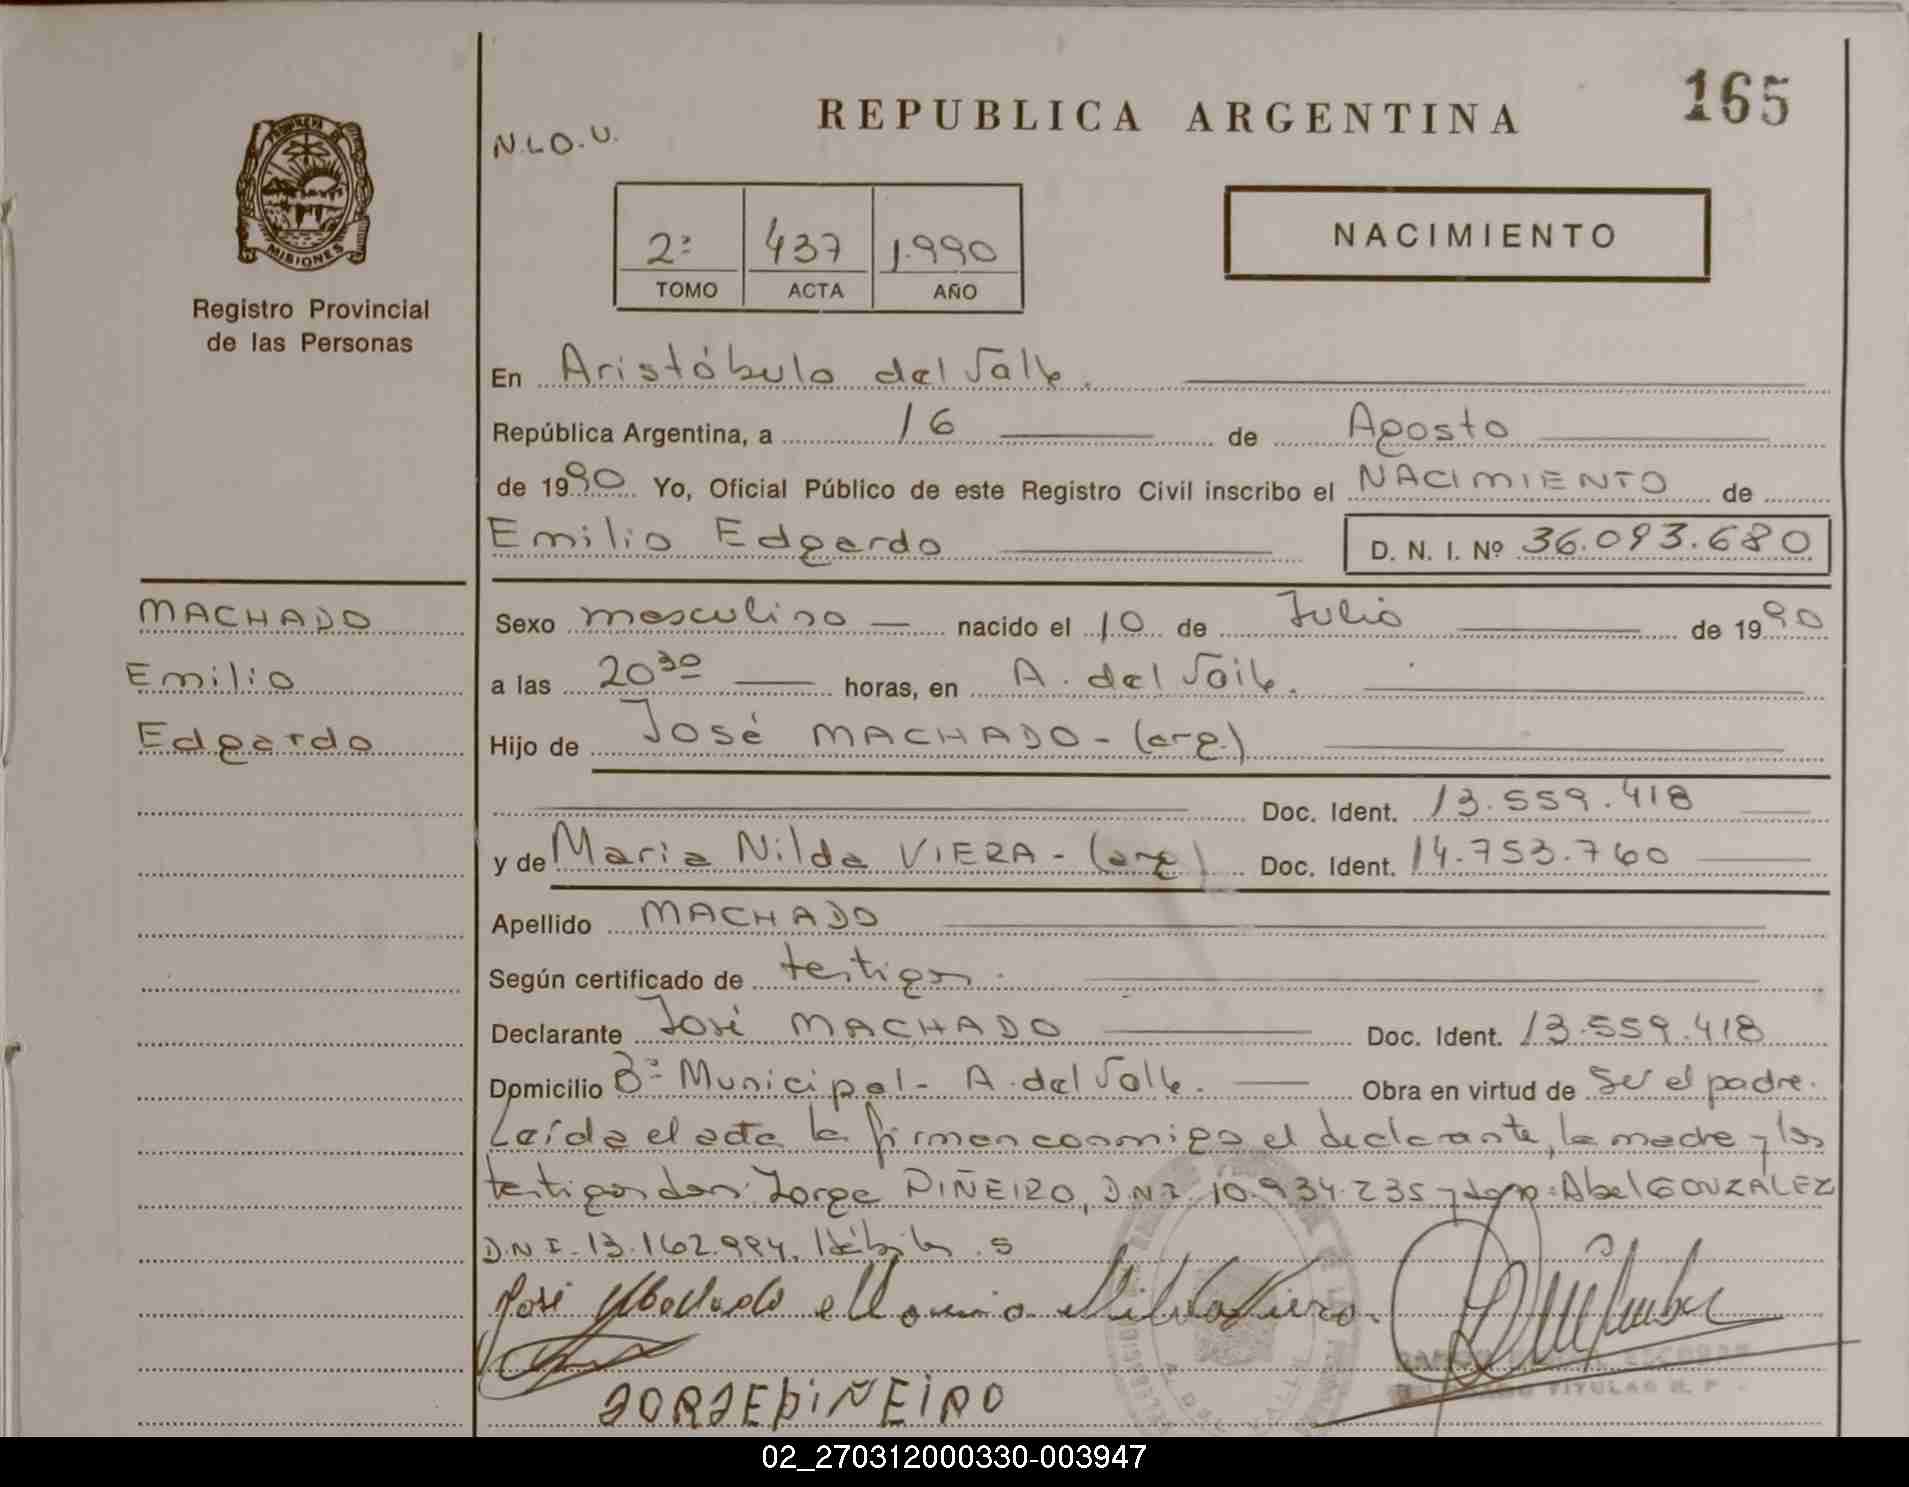 165
REPUBLICA ARGENTINA
N.L.O.U.
PROVINCIA DE
MISIONES
Registro Provincial
de las Personas
2º 437 1.990
TOMO ACTA AÑO
NACIMIENTO
En Aristóbulo del Valle.
República Argentina, a 16 de Agosto
de 1990 Yo, Oficial Público de este Registro Civil inscribo el NACIMIENTO de
Emilio Edgardo D. N. I. Nº 36.093.680
MACHADO
Emilio
Edgardo
Sexo masculino nacido el 10 de Julio de 1990
a las 20 30 horas, en A. del Valle.
Hijo de José MACHADO - (arg.)
Doc. Ident. 13.559.418
y de Maria Nilda VIERA - (arg) Doc. Ident. 14.753.760
Apellido MACHADO
Según certificado de testigos.
Declarante José MACHADO Doc. Ident. 13.559.418
Domicilio Bº Municipal - A. del Valle. Obra en virtud de ser el padre.
Leída el acta la firman conmigo el declarante, la madre y los
testigos don: Jorge PIÑEIRO, D.N.I. 10.934.235 y don: Abel GONZALEZ
D.N.I. 13.162.994. Hábiles
José Machado Maria Nilda Viera.
JORJE PIÑEIRO
TITULAR R. P.
02_270312000330-003947